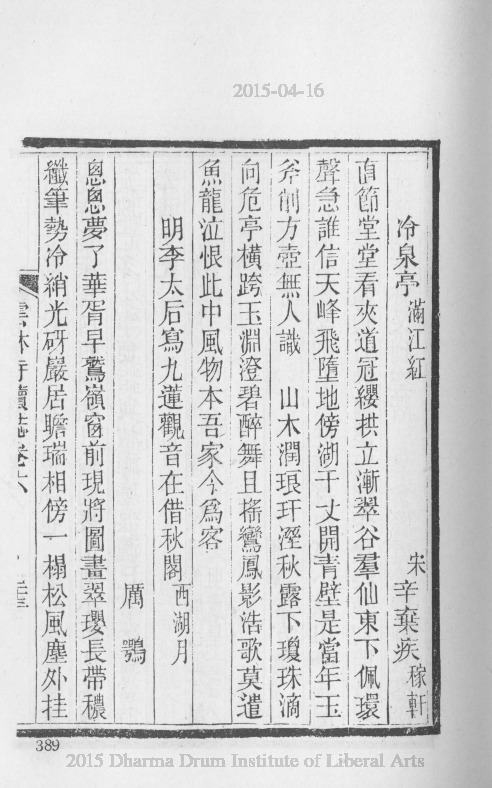 2015-04-16
冷泉亭 滿江紅 宋 辛棄疾 稼軒
直節堂堂看夾道冠纓拱立漸翠谷羣仙東下佩環
聲急誰信天峰飛墮地傍湖千丈開青壁是當年玉
斧削方壺無人識 山木潤琅玕溼秋露下瓊珠滴
向危亭橫跨玉淵澄碧醉舞且搖鸞鳳影浩歌莫遣
魚龍泣恨此中風物本吾家今爲客
明李太后寫九蓮觀音在借秋閣 西湖月
厲鶚
悤悤夢了華胥早鷲嶺窗前現將圖畫翠瓔長帶穠
纖筆勢冷綃光砑巖居瞻瑞相傍一榻松風塵外挂
雲林寺續誌卷六
389
2015 Dharma Drum Institute of Liberal Arts